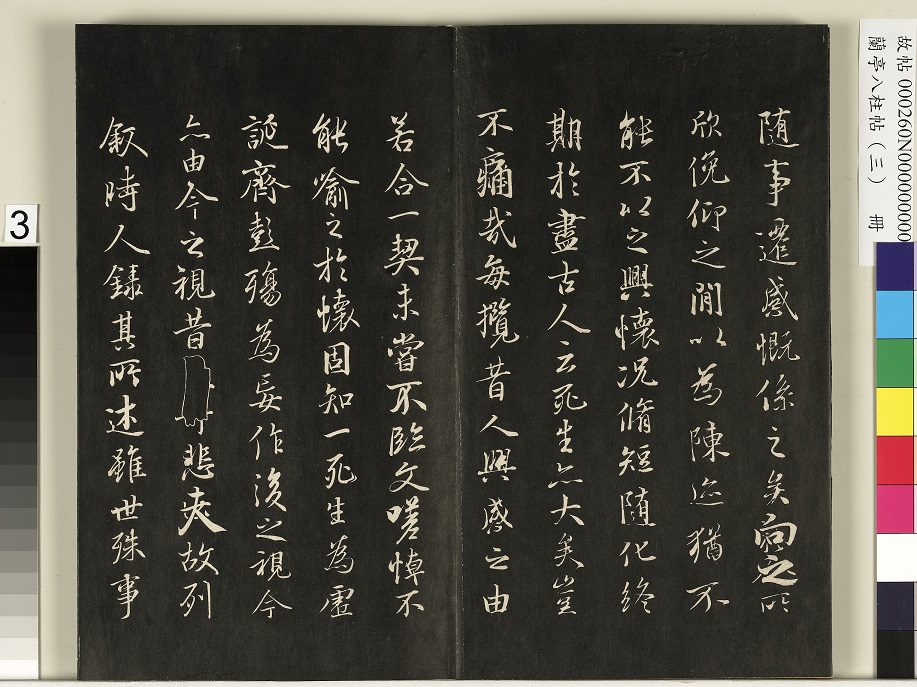 隨事遷感慨係之矣向之所
欣俛仰之閒以為陳迹猶不
能不以之興懷况脩短隨化終
期於盡古人云死生亦大矣豈
不痛哉每攬昔人興感之由
若合一契未嘗不臨文嗟悼不
能喻之於懷固知一死生為虛
誕齊彭殤為妄作後之視今
亦由今之視昔 悲夫故列
敘時人錄其所述雖世殊事
故帖000260N000000000
蘭亭八柱帖（三） 冊
3